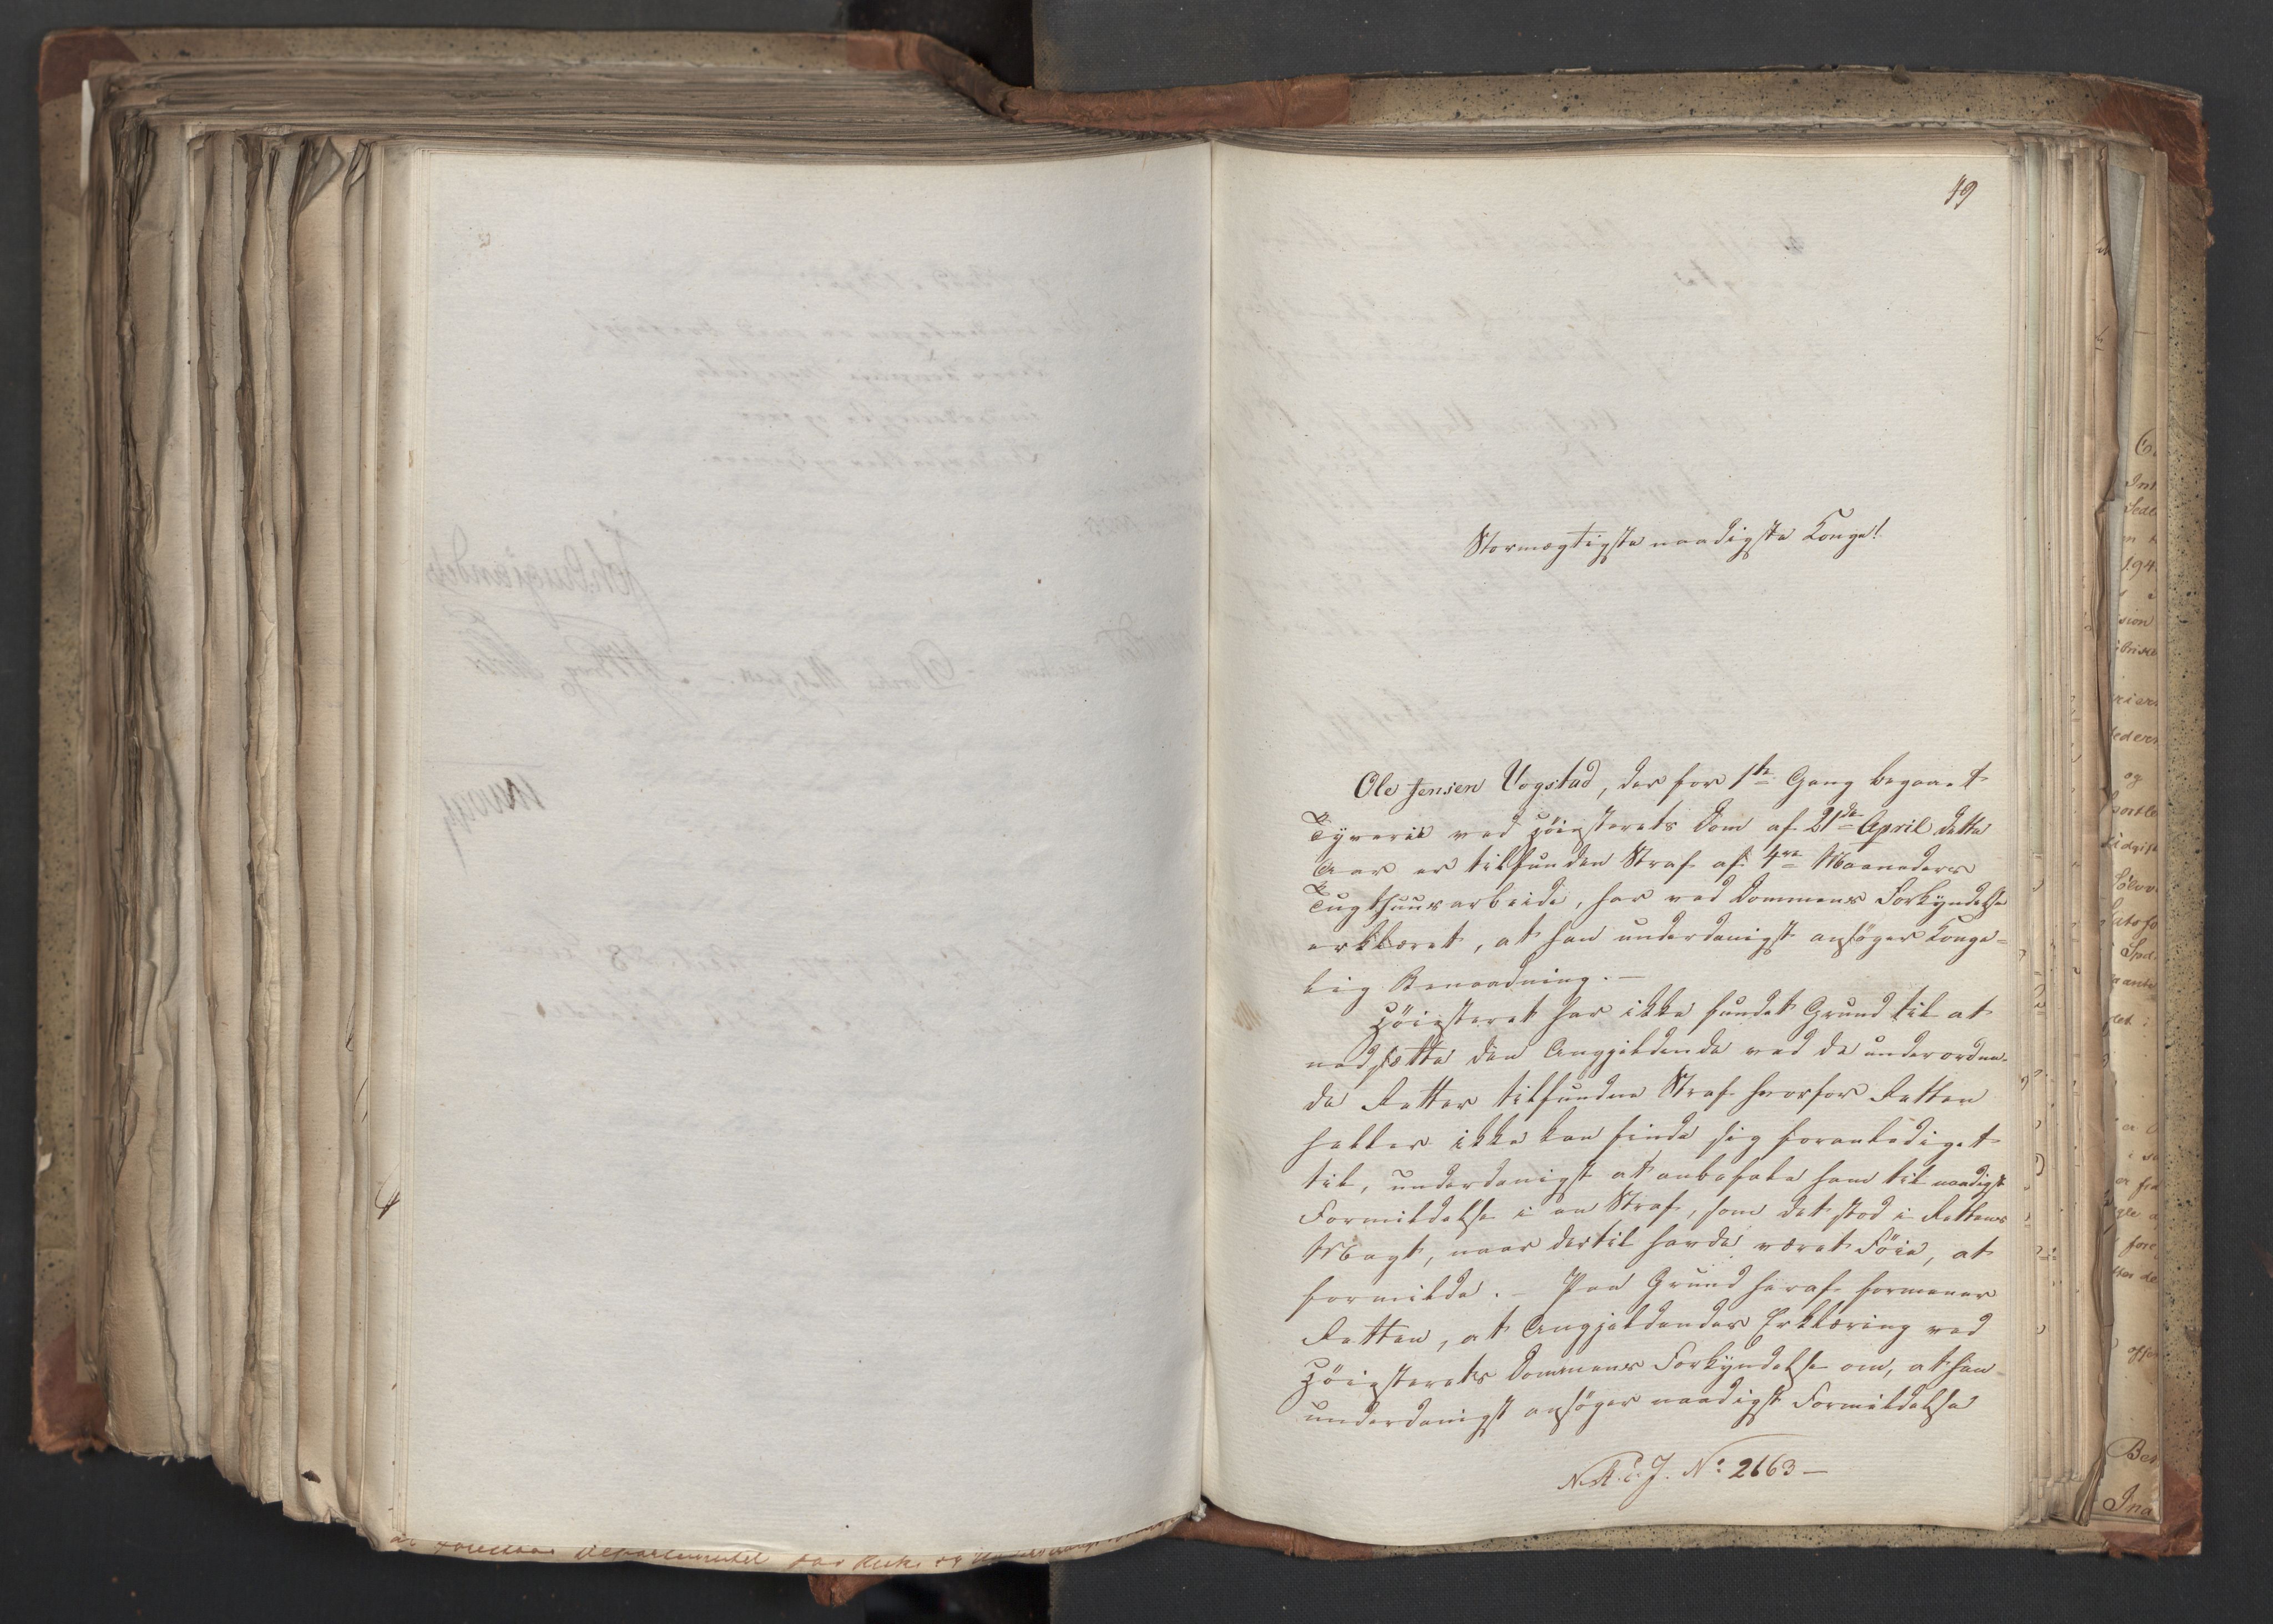 49
Stormægtigste naadigste Konge!
Ole Jensen Vogstad, der for 1ste Gang begaaet
Tyverie ved Höiesterets Dom af 21de April dette
Aar er tilfunden Straf af 4re Maaneders
Tugthuusarbeide, har ved Dommens Forkyndelse
erklæret, at han underdanigst ansöger Konge-
lig Benaadning. –
Höiesteret har ikke fundet Grund til at
nedsætte den Angjeldende ved de underordne-
de Retter tilfundne Straf hvorfor Retten
heller ikke kan finde sig foranlediget
til, underdanigst at anbefale ham til naadigst
Formildelse i en Straf, som det stod i Rettens
Magt, naar dertil havde været Föie, at
formilde. – Paa Grund heraf formener
Retten, at Angjeldendes Erklæring ved
Höiesterets Dommens Forkyndelse om, at han
underdanigst ansöger naadigst Formildelse
No: 2663 –